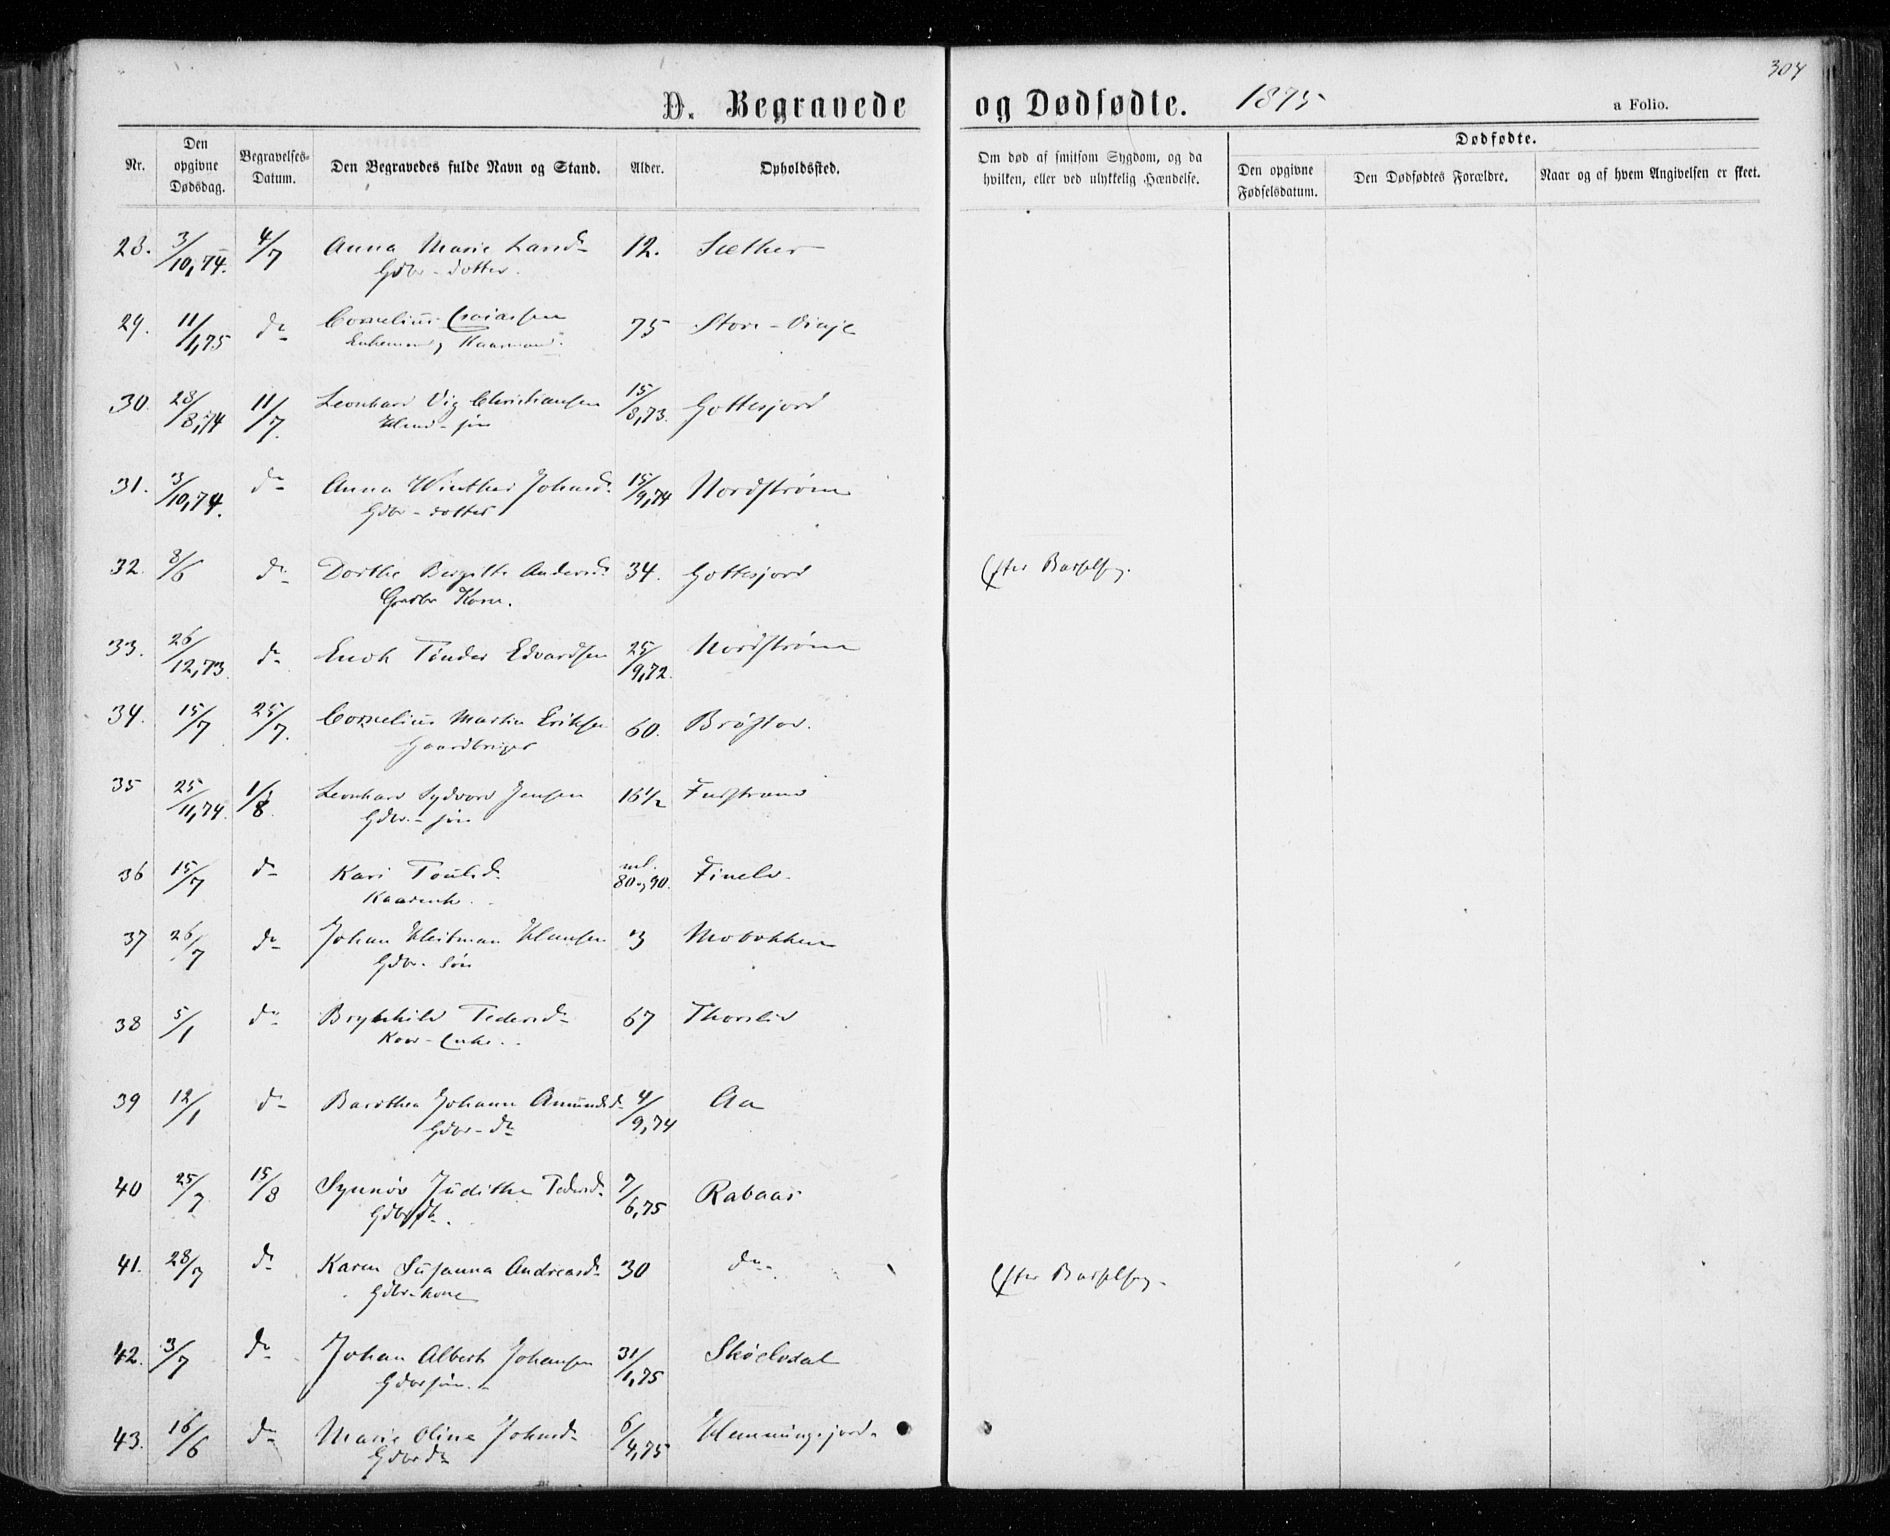 304
D. Begravede og Dødfødte. 1875 a Folio.
Nr. Den opgivne Dødsdag. Begravelses-Datum. Den Begravedes fulde Navn og Stand. Alder. Opholdssted. Om død af smitsom Sygdom, og da hvilken, eller ved ulykkelig Hændelse. Dødfødte. Den opgivne Fødselsdatum. Den Dødfødtes Forældre. Naar og af hvem Angivelsen er skeet.
28. 3/10,74. 4/7 Anna Marie Larsd. 12. Sæther
Gdbr-dotter.
29. 11/1,75 do Cornelius Esaiassen 75 Store-Vinje
Enkemand, Kaarmand.
30. 28/8,74 11/7. Leonhard Vig Christiansen 15/8,73. Gottesjord
søn
31. 3/10,74. do Anna Winther Johnsd. 15/9,74 Nordstrøm
Gdbr-dotter
32. 8/6 do Dorthe Bergitte Andersd. 34. Gottesjord Efter Barselseng.
Gaardbr Kone.
33. 26/12,73. do Enok Tønder Edvardsen 25/9,72. Nordstrøm
34. 15/7 25/7. Cornelius Martin Eriksen 60. Brøstad.
Gaardbruger
35 25/11,74. 1/8. Leonhard Sydvard Jensen 16 1/2 Furstrand
Gdbr.-søn
36 15/7 do Kari Poulsd. ml. 80 og 90. Finelv.
Kaarenke.
37 26/7 do Johan Heitman Hansen 3 Mobakken
Gdbr. Søn
38 5/1 do Brynhild Pedersd. 67 Thorslid
Kaar-Enke.
39 12/1 do Barothea Johanna Amundsd. 4/9,74 Aa
Gdbr-dr
40 25/7 15/8 Synnøv Judithe Pedersd. 7/6,75 Rabaas
Gdbrdr.
41. 28/7 do Karen Susanna Andreasd. 30 do. Efter Barselseng.
Gdbr-kone
42. 3/7 do Johan Albert Johansen 31/1,75 Skøelvdal
Gdbrsøn.
43. 16/6 do Marie Olina Johnsd. 6/4,75 Hemmingsjord.
Gdbrdr